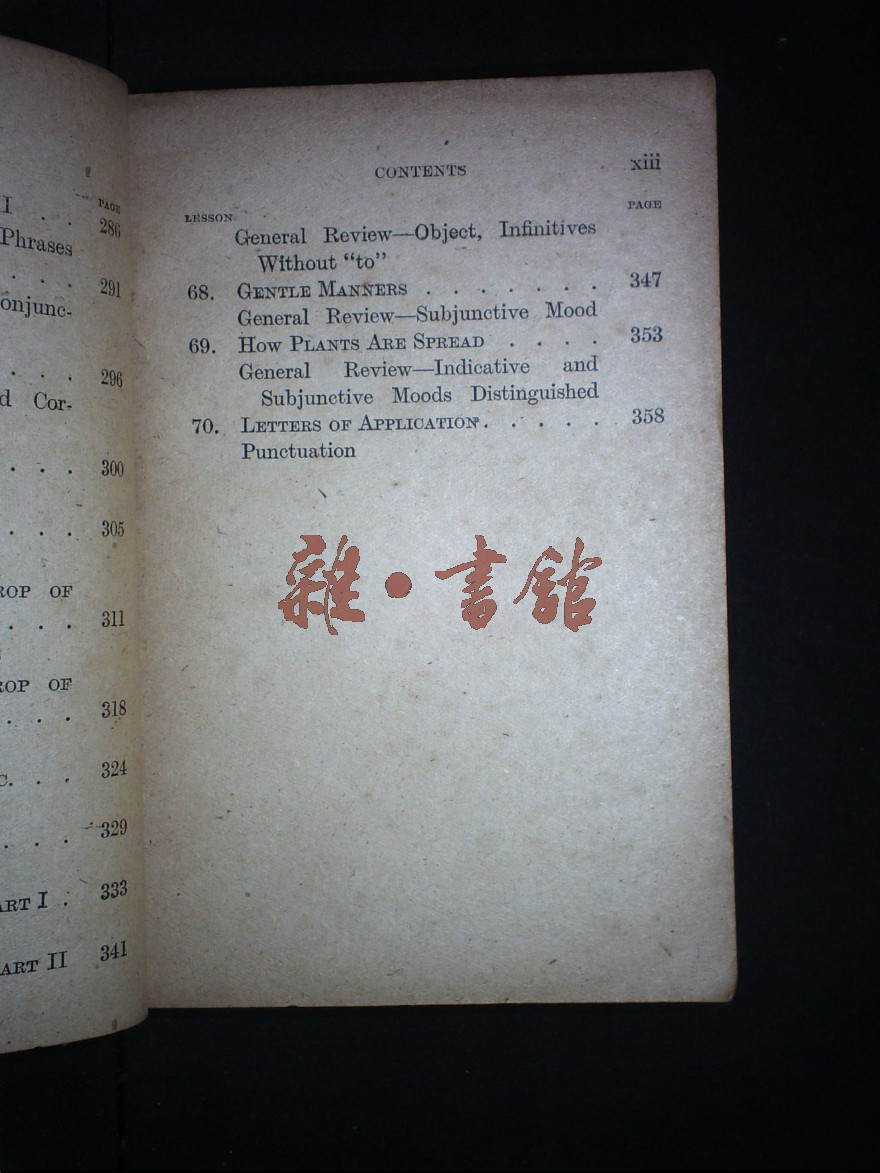 I . . PAGE
286
Phrases
. . 291
onjunc-
. . . 296
d Cor-
. . . 300
. . . 305
ROP OF
. . . 311
ROP OF
. . . 318
C. . . 324
. . . 329
ART I . 333
ART II 341
CONTENTS xiii
LESSON PAGE
General Review—Object, Infinitives
Without “to”
68. GENTLE MANNERS . . . . . . . 347
General Review—Subjunctive Mood
69. HOW PLANTS ARE SPREAD . . . . 353
General Review—Indicative and
Subjunctive Moods Distinguished
70. LETTERS OF APPLICATION . . . . . 358
Punctuation
雜·書館